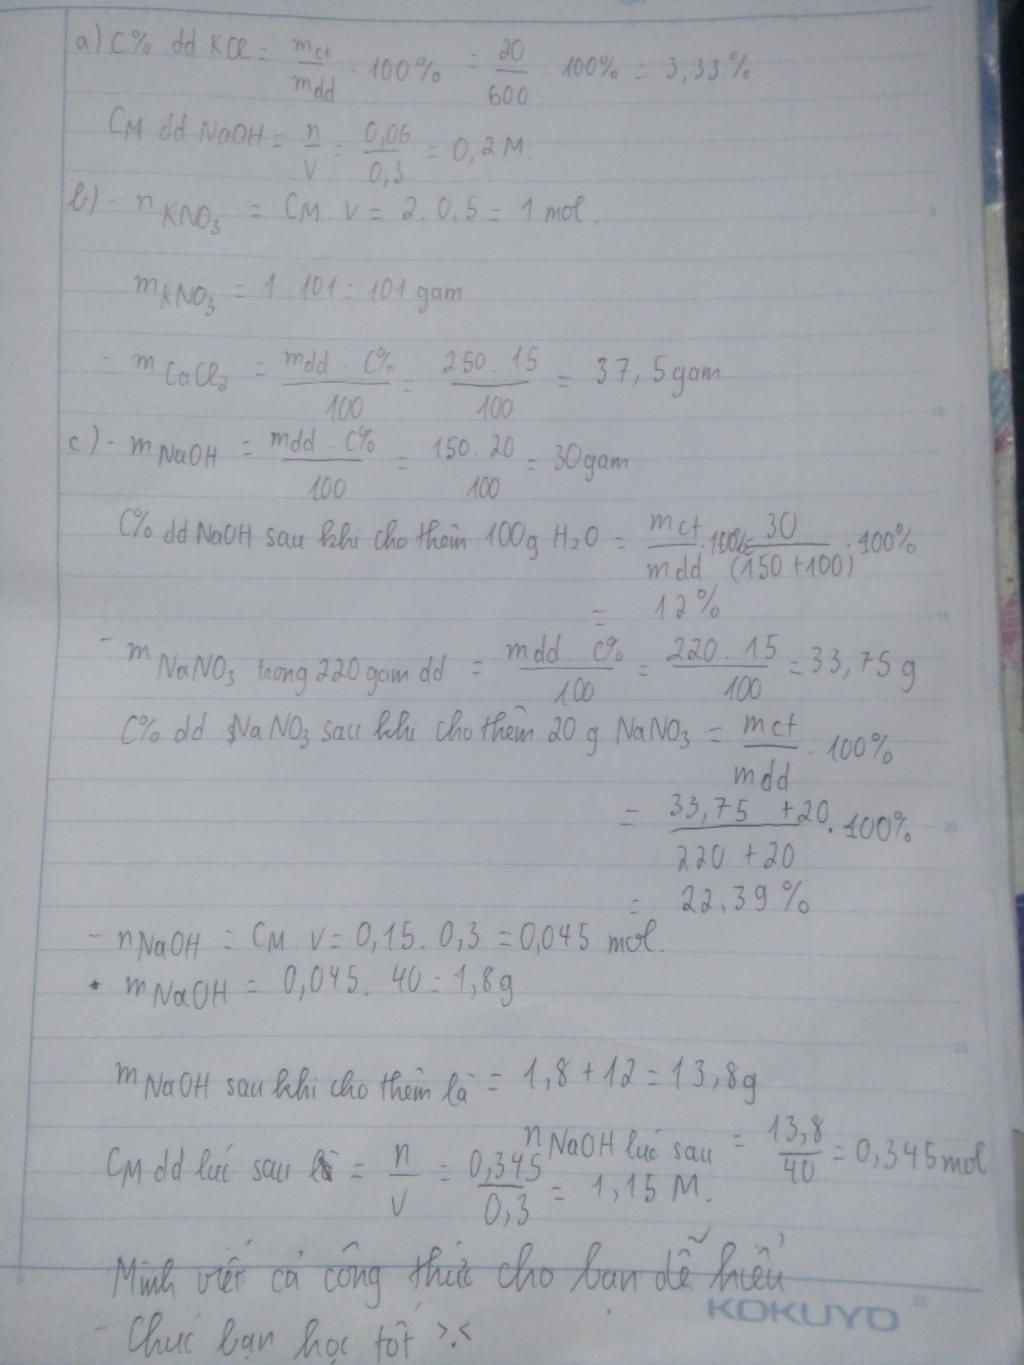 a) C% dd KCl = mct/mdd . 100% = 20/600 100% = 3,33%
CM dd NaOH = n/V = 0,06/0,3 = 0,2 M.
b) - nKNO3 = CM V = 2. 0,5 = 1 mol.
mKNO3 = 1. 101 = 101 gam
- mCaCl2 = mdd . C%/100 = 250. 15/100 = 37,5 gam
c) - mNaOH = mdd . C%/100 = 150. 20/100 = 30 gam.
C% dd NaOH sau khi cho thêm 100g H2O = mct/mdd . 100% = 30/(150 + 100) . 100%
= 12%
- mNaNO3 trong 220 gam dd = mdd C%/100 = 220. 15/100 = 33,75 g
C% dd NaNO3 sau khi cho thêm 20 g NaNO3 = mct/mdd . 100%
= 33,75 + 20/220 + 20 . 100%
= 22,39 %
- nNaOH = CM. V = 0,15. 0,3 = 0,045 mol.
• mNaOH = 0,045. 40 = 1,8g
mNaOH sau khi cho thêm là = 1,8 + 12 = 13,8g
nNaOH lúc sau = 13,8/40 = 0,345 mol
CM dd lúc sau = n/V = 0,345/0,3 = 1,15 M.
Mình viết cả công thức cho bạn dễ hiểu
KOKUYO
- Chúc bạn học tốt >.<